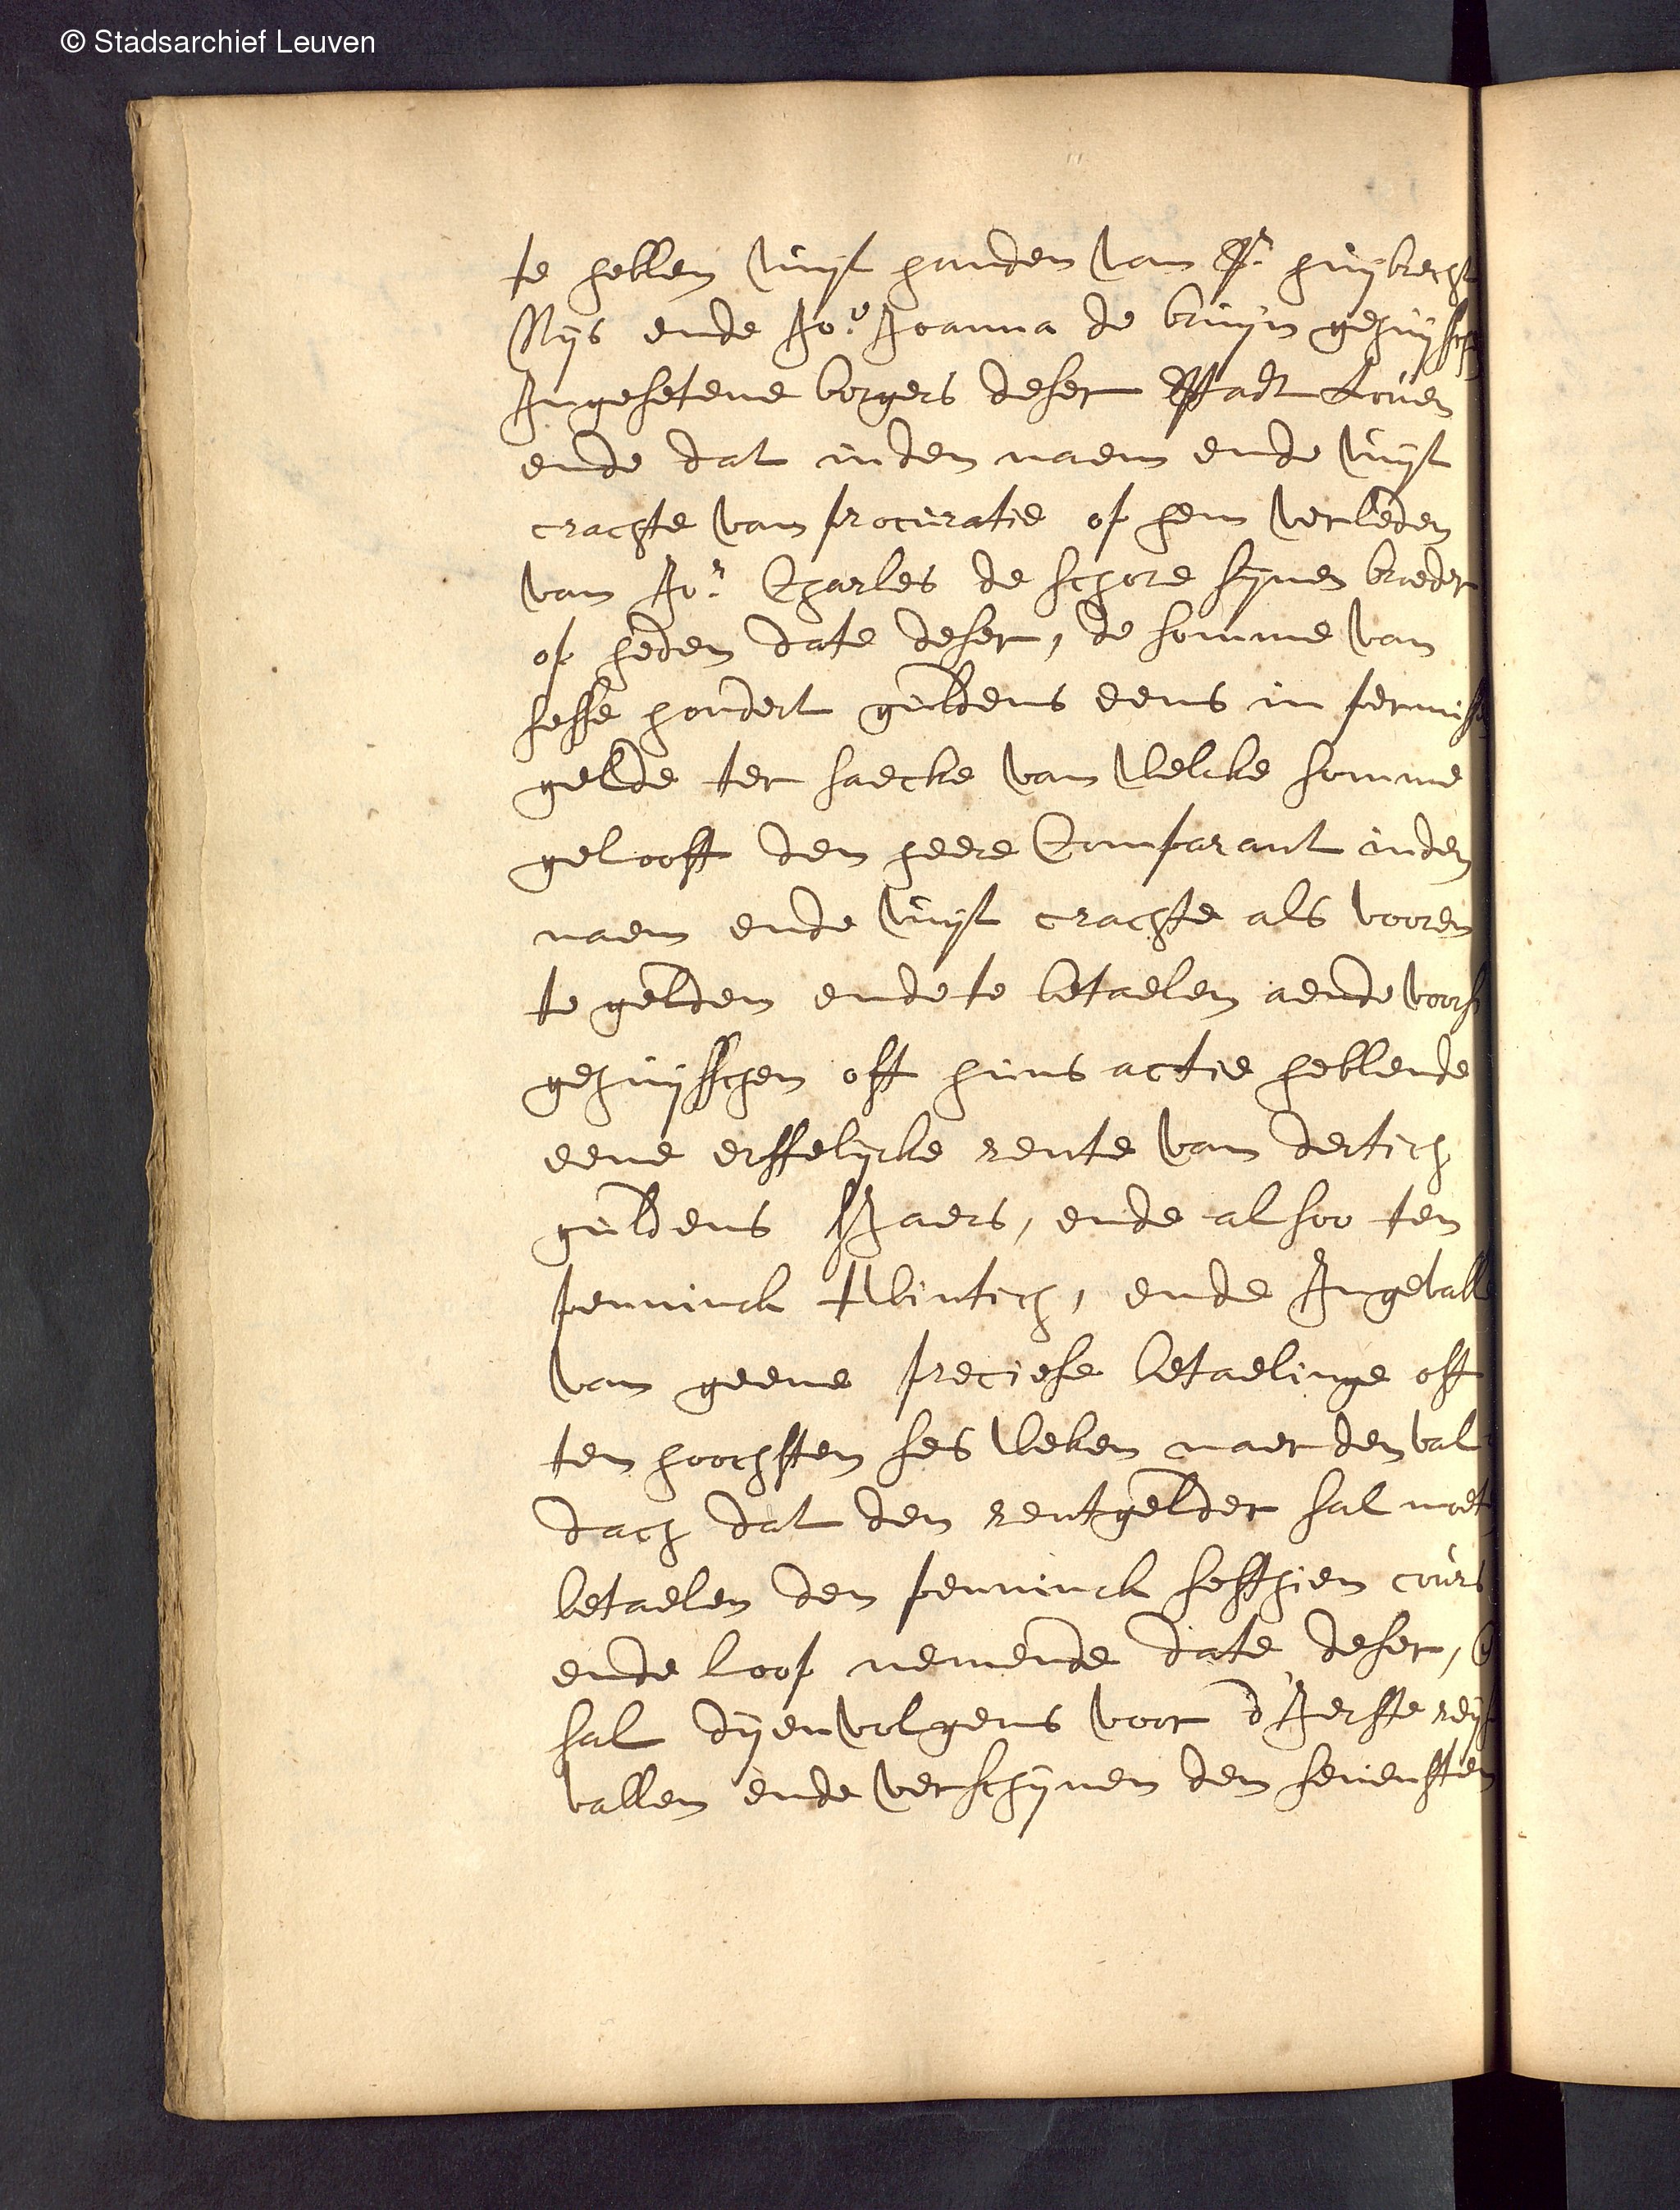 © Stadsarchief Leuven
te hebben vuijt handen van Sr. huijbrecht
Nijs ende Jo.e Joanna de bruijn gehuijssch
Ingesetene borgers deser Stadt Loven
ende dat inden naem ende vuijt
crachte van procuratie op hem verleden
van Jo.r Charles de schore sijnen broeder
op heden date deser, de somme van
sesse hondert guldens eens in permiss
gelde ter saecke van welcke somme
gelooft den heere Comparant inden
naem ende vuijt crachte als vooren
te gelden ende te betaelen aende voors
gehuijsschen oft huns actie hebbende
eene erffelijcke rente van dertich
guldens sJaers, ende alsoo ten
penninck twintich, ende Ingevalle
van geene preciese betaelinge oft
ten hoochsten ses weken naer den val
dach dat den rentgelder sal moet
betaelen den penninck sesthien cours
ende loop nemende date deser,
sal dijenvolgens voor d'Ierste reijs
vallen ende verschijnen den sevensten